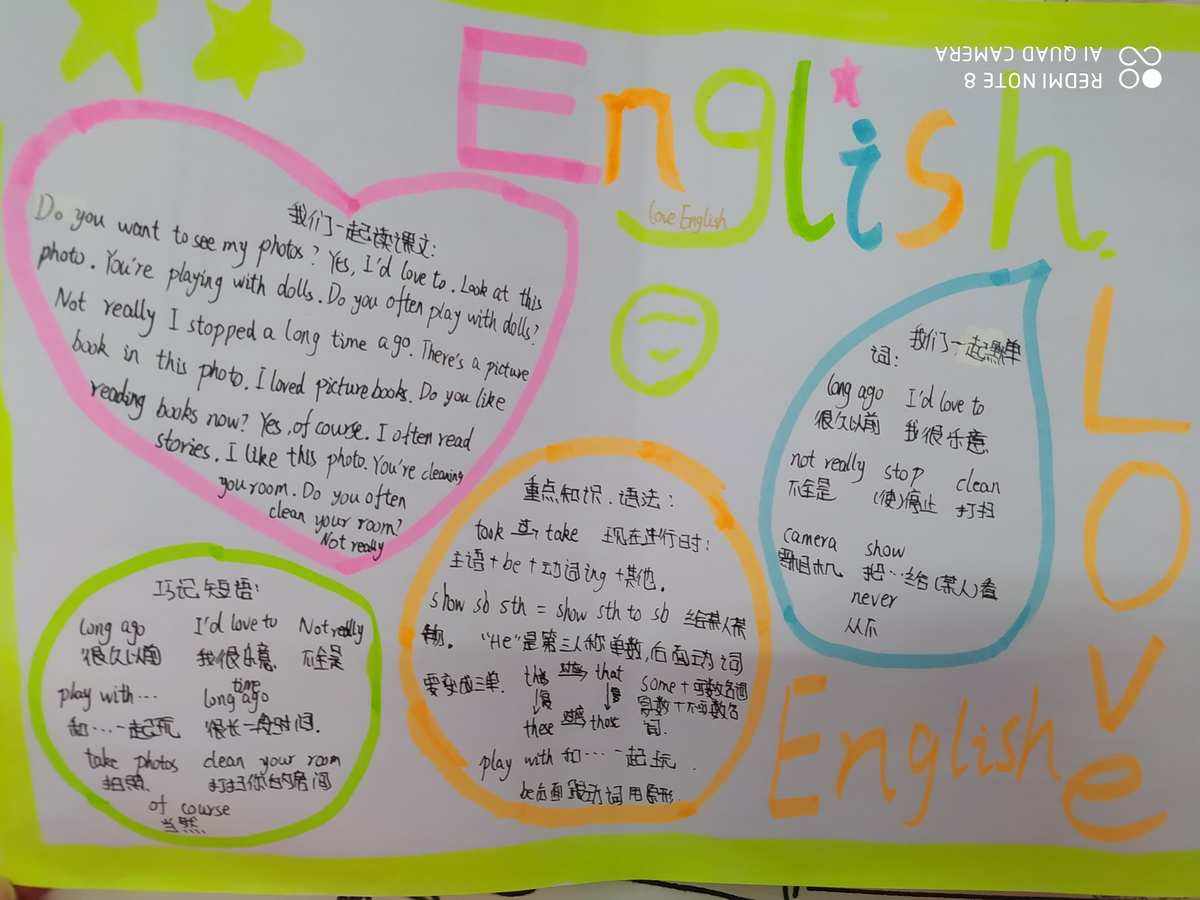 English.
love English
REDMI NOTE 8
AI QUAD CAMERA
我们一起读课文:
Do you want to see my photos? Yes, I'd love to. Look at this
photo. You're playing with dolls. Do you often play with dolls?
Not really I stopped a long time ago. There's a picture
book in this photo. I loved picture books. Do you like
reading books now? Yes, of course. I often read
stories. I like this photo. You're cleaning
you room. Do you often
clean your room?
Not really
我们一起
单
词:
long ago I'd love to
很久以前 我很乐意
not really stop clean
不全是 (使)停止 打扫
camera show
照相机 把…给(某人)看
never
从不
重点知识.语法:
took take 现在进行时:
主语+be+动词ing+其他.
show sb sth = show sth to sb 给某人某
物. "He"是第三人称单数,后面动词
要变成三单.
this that
these those
some+可数名词
复数+不可数名
词.
play with 和…一起玩.
be后面跟动词用原形.
巧记短语:
long ago I'd love to Not really
很久以前 我很乐意. 不全是
play with… long time ago
和…一起玩 很长一段时间.
take photos clean your room
拍照. 打扫你的房间
of course
当然.
LOve
English